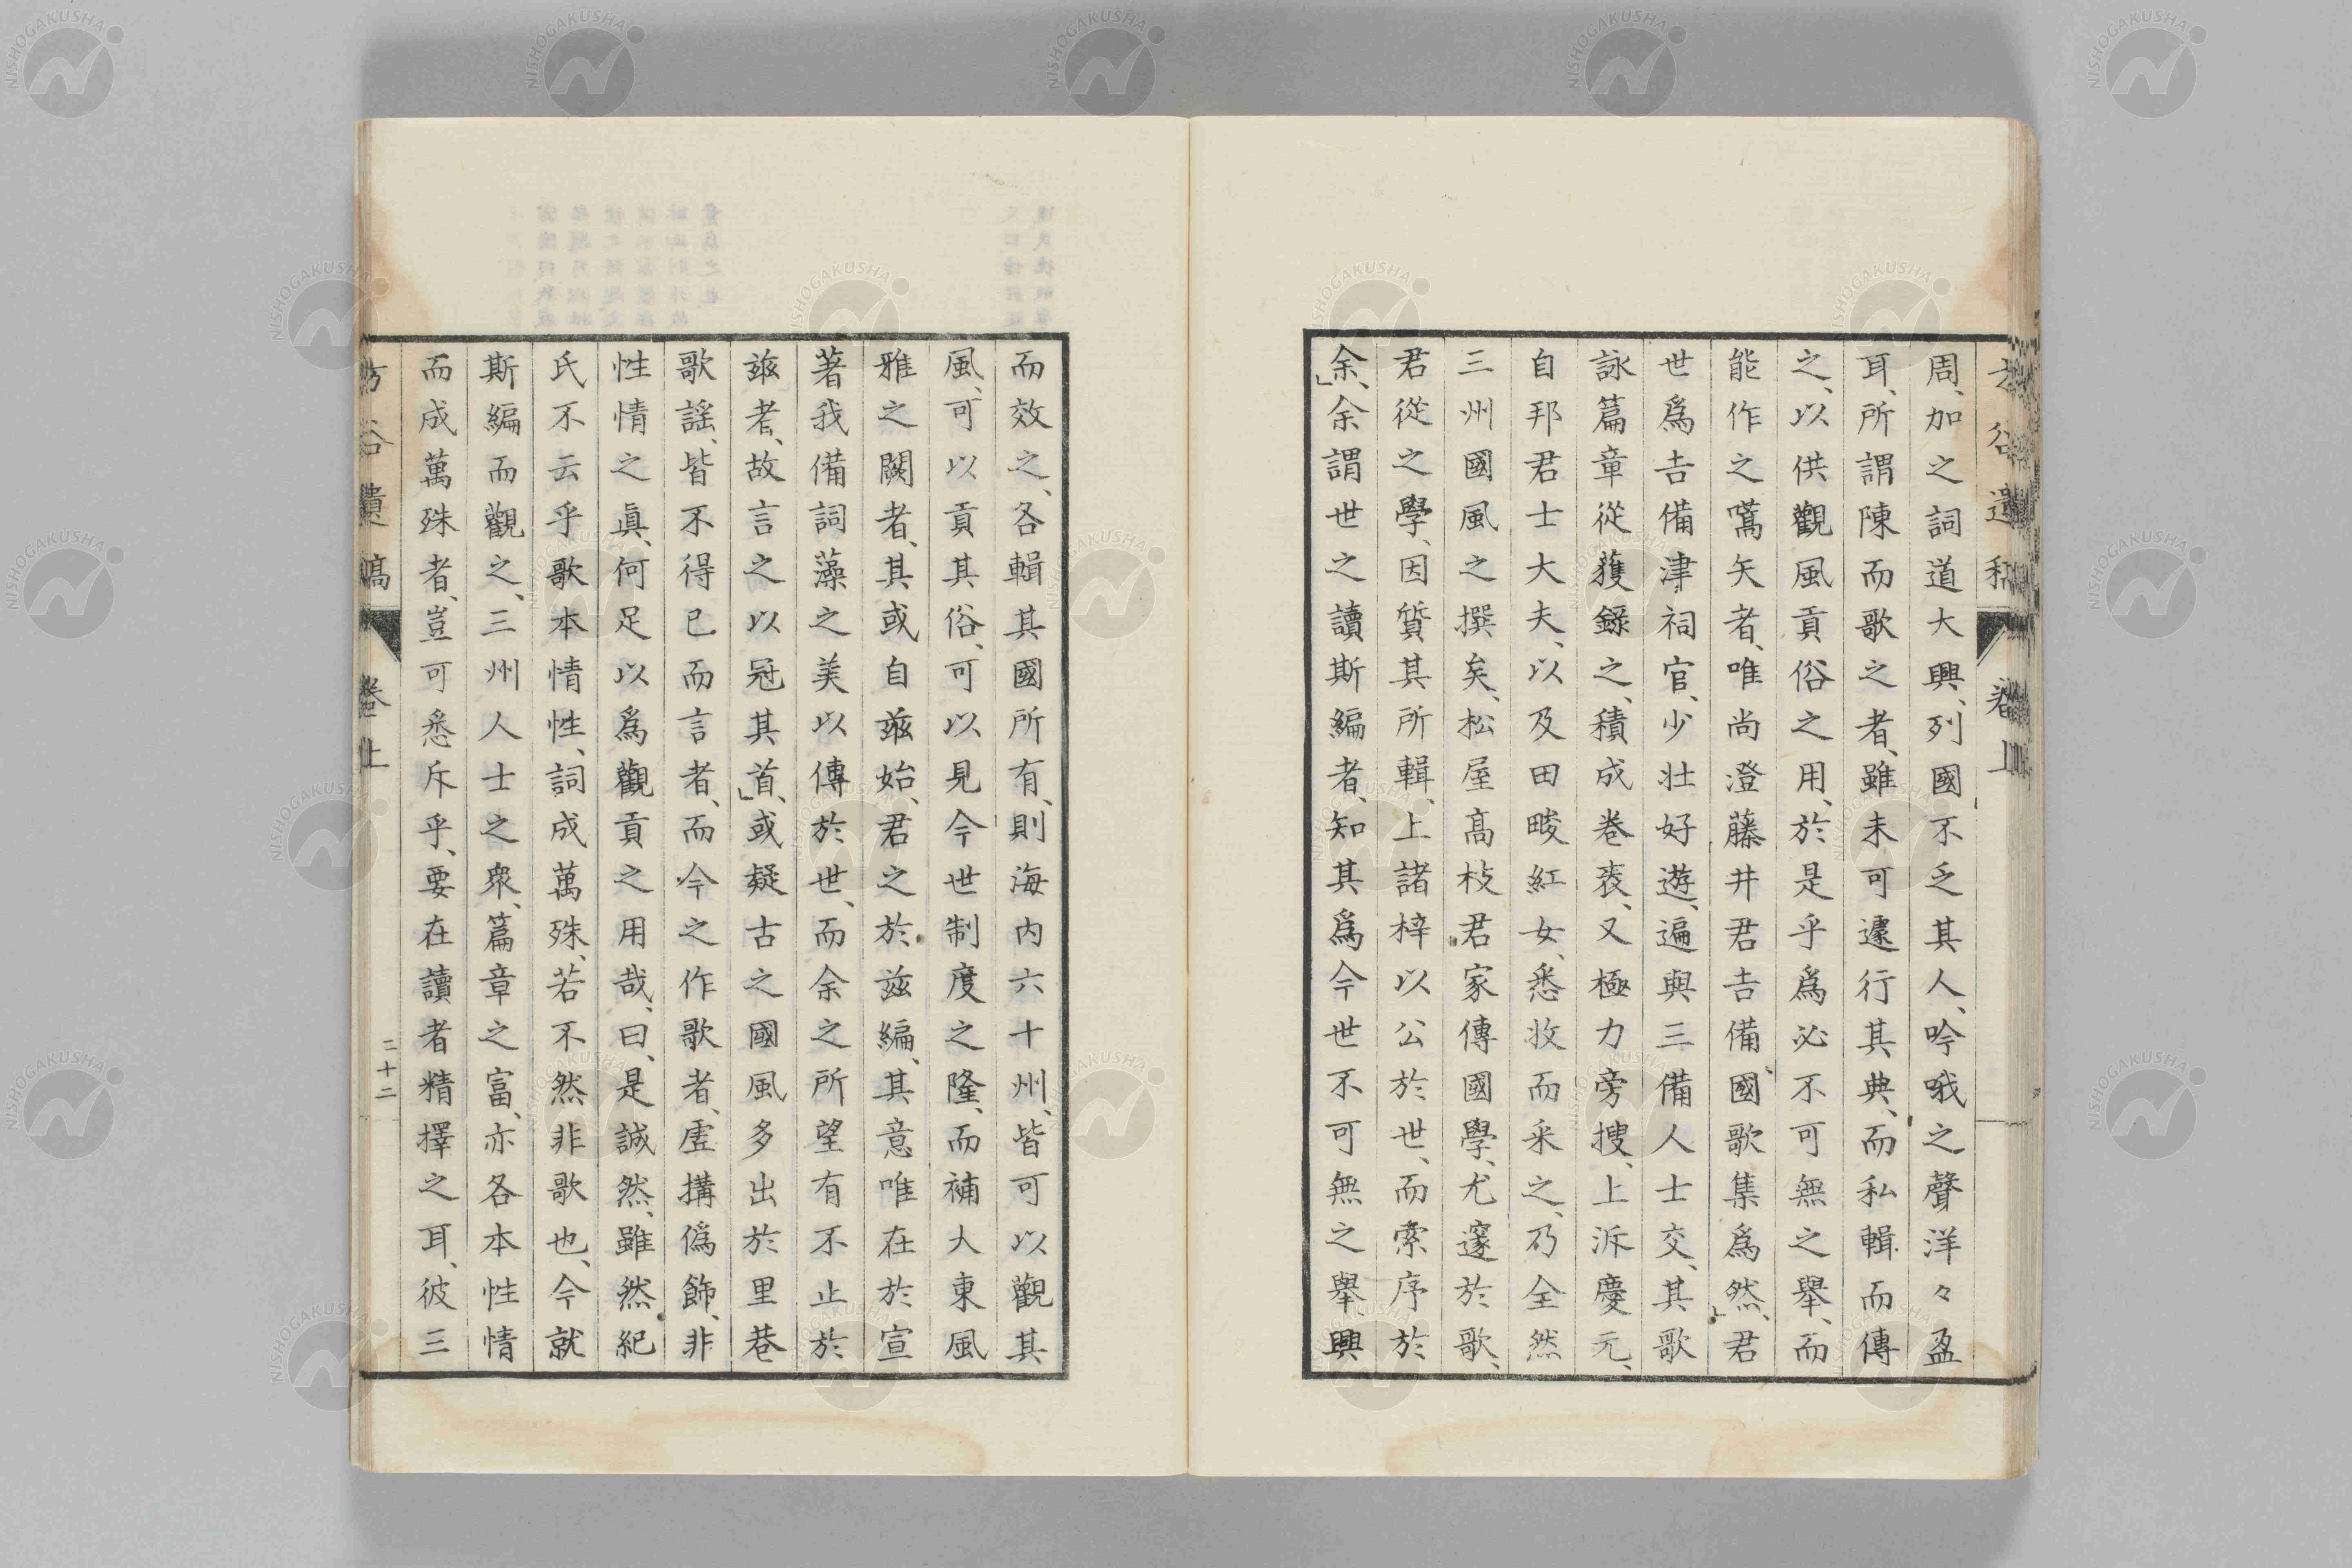 周、加之詞道大興、列國不乏其人、吟哦之聲洋々盈
耳、所謂陳而歌之者、雖未可遽行其典、而私輯而傳
之、以供觀風貢俗之用、於是乎爲必不可無之舉、而
能作之嚆矢者、唯尚澄藤井君吉備國歌集爲然、君
世爲吉備津祠官、少壯好遊、遍與三備人士交、其歌
詠篇章從蒦錄之、積成卷袠、又極力旁搜、上泝慶元、
自邦君士大夫、以及田畯紅女、悉收而采之、乃全然
三州國風之撰矣、松屋髙枝君家傳國學、尤邃於歌、
君從之學、因質其所輯、上諸梓以公於世、而索序於
余、余謂世之讀斯編者、知其爲今世不可無之舉興
而效之、各輯其國所有、則海內六十州、皆可以觀其
風、可以貢其俗、可以見今世制度之隆、而補大東風
雅之闕者、其或自玆始、君之於玆編、其意唯在於宣
著我備詞藻之美以傳於世、而余之所望有不止於
玆者、故言之以冠其首、或疑古之國風多出於里巷
歌謠、皆不得已而言者、而今之作歌者、虛搆僞飾、非
性情之眞、何足以爲觀貢之用哉、曰、是誠然、雖然紀
氏不云乎歌本情性、詞成萬殊、若不然非歌也、今就
斯編而觀之、三州人士之衆、篇章之富、亦各本性情
而成萬殊者、豈可悉斥乎、要在讀者精擇之耳、彼三
卷上
二十二